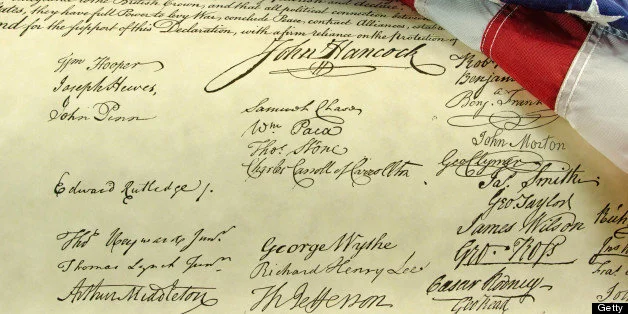 to the British Crown, and that all political connection between
they have full Power to levy War, conclude Peace, contract Alliances,
nd for the support of this Declaration, with a firm reliance on the protection of
John Hancock
Wm Hooper
Joseph Hewes,
John Penn
Edward Rutledge /.
Thos Heyward Junr.
Thomas Lynch Junr.
Arthur Middleton
Samuel Chase
Wm Paca
Thos Stone
Charles Carroll of Carrollton
George Wythe
Richard Henry Lee
Th Jefferson
Robt
Benjamin
Benj. Frank
John Morton
Geo Clymer
Jas. Smith
Geo. Taylor
James Wilson
Geo. Ross
Caesar Rodney
Geo Read
Getty